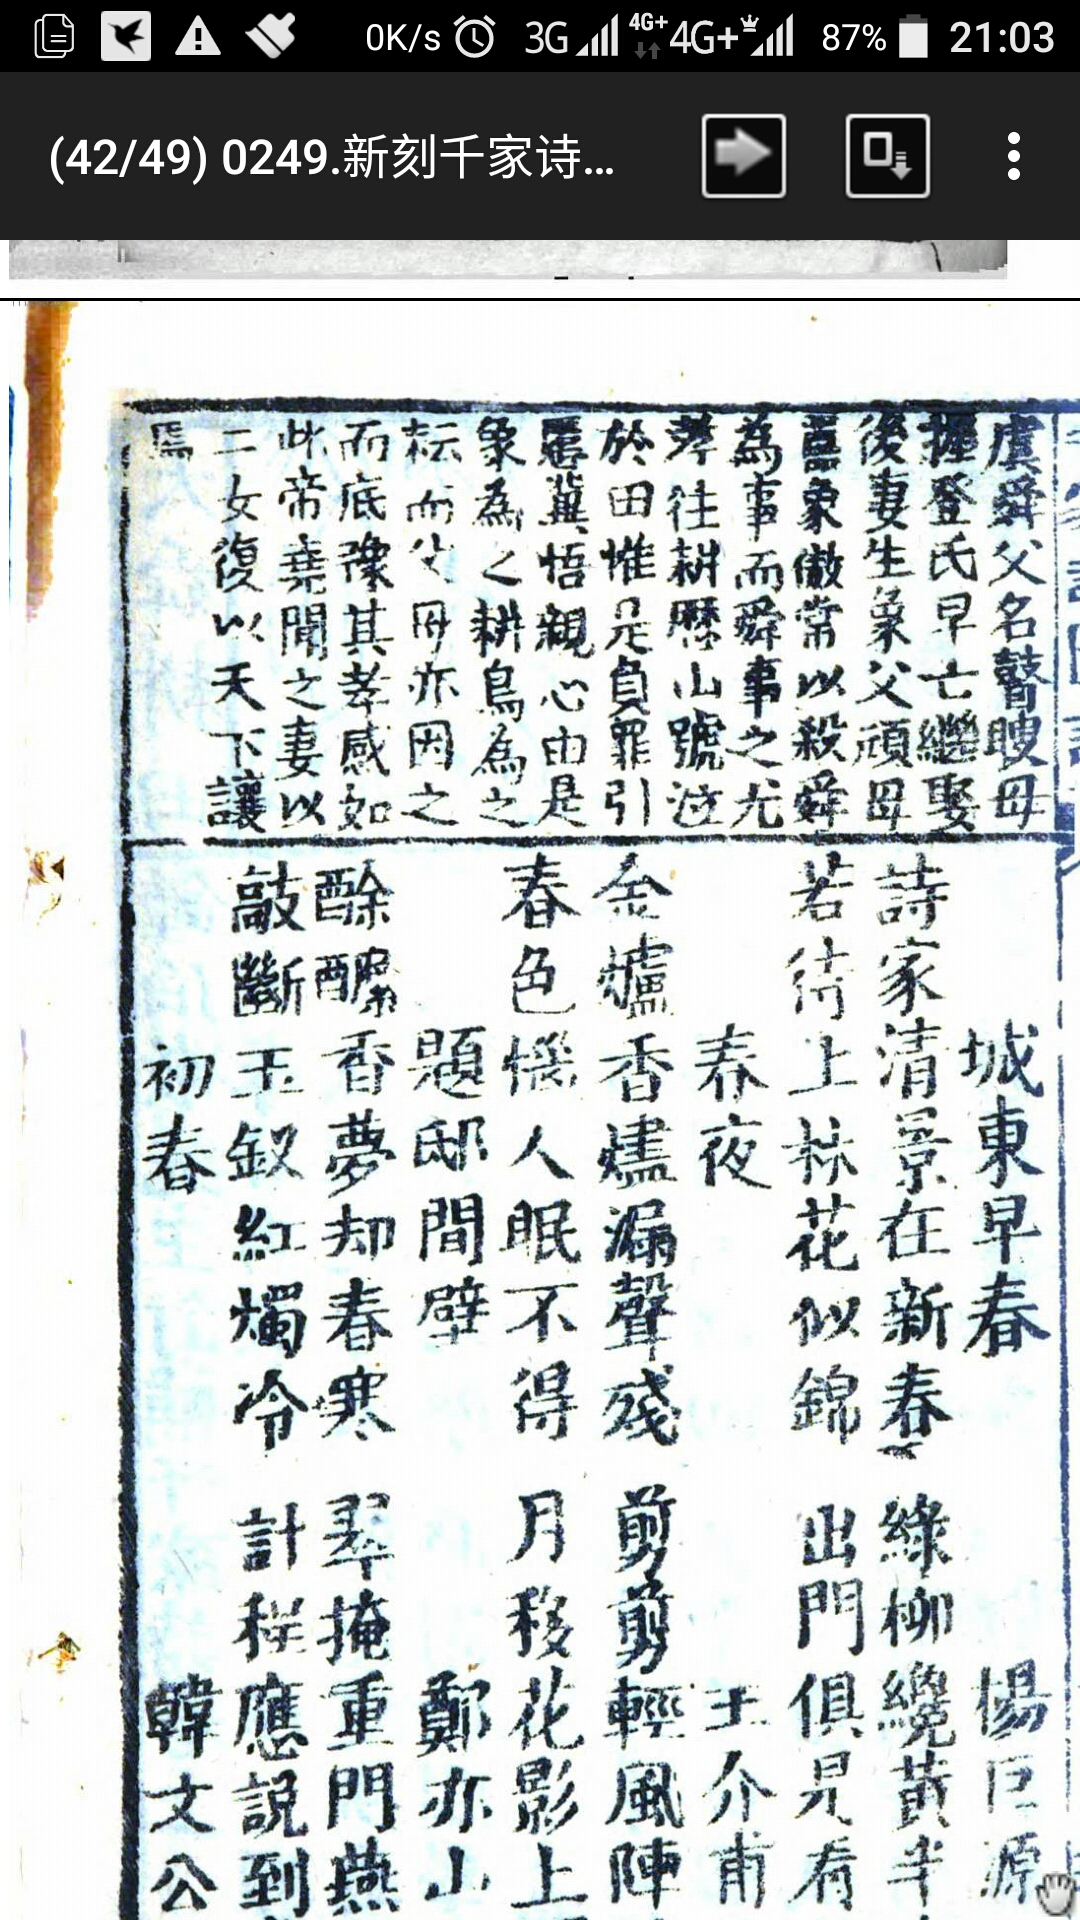 0K/s 3G 4G+ 4G+ 87% 21:03
(42/49) 0249.新刻千家诗...
虞舜父名瞽瞍母
握登氏早亡繼娶
後妻生象父頑母
嚚象傲常以殺舜
為事而舜事之尤
孝往耕歷山號泣
於田惟是負罪引
慝冀悟親心由是
象為之耕鳥為之
耘而父母亦因之
而底豫其孝感如
此帝堯聞之妻以
二女復以天下讓
焉
城東早春 楊巨源
詩家清景在新春 綠柳纔黃半
若待上林花似錦 出門俱是看
春夜 王介甫
金爐香燼漏聲殘 剪剪輕風陣
春色惱人眠不得 月移花影上
題邸間壁 鄭亦山
酴醾香夢却春寒 翠掩重門燕
敲斷玉釵紅燭冷 計程應說到
初春 韓文公